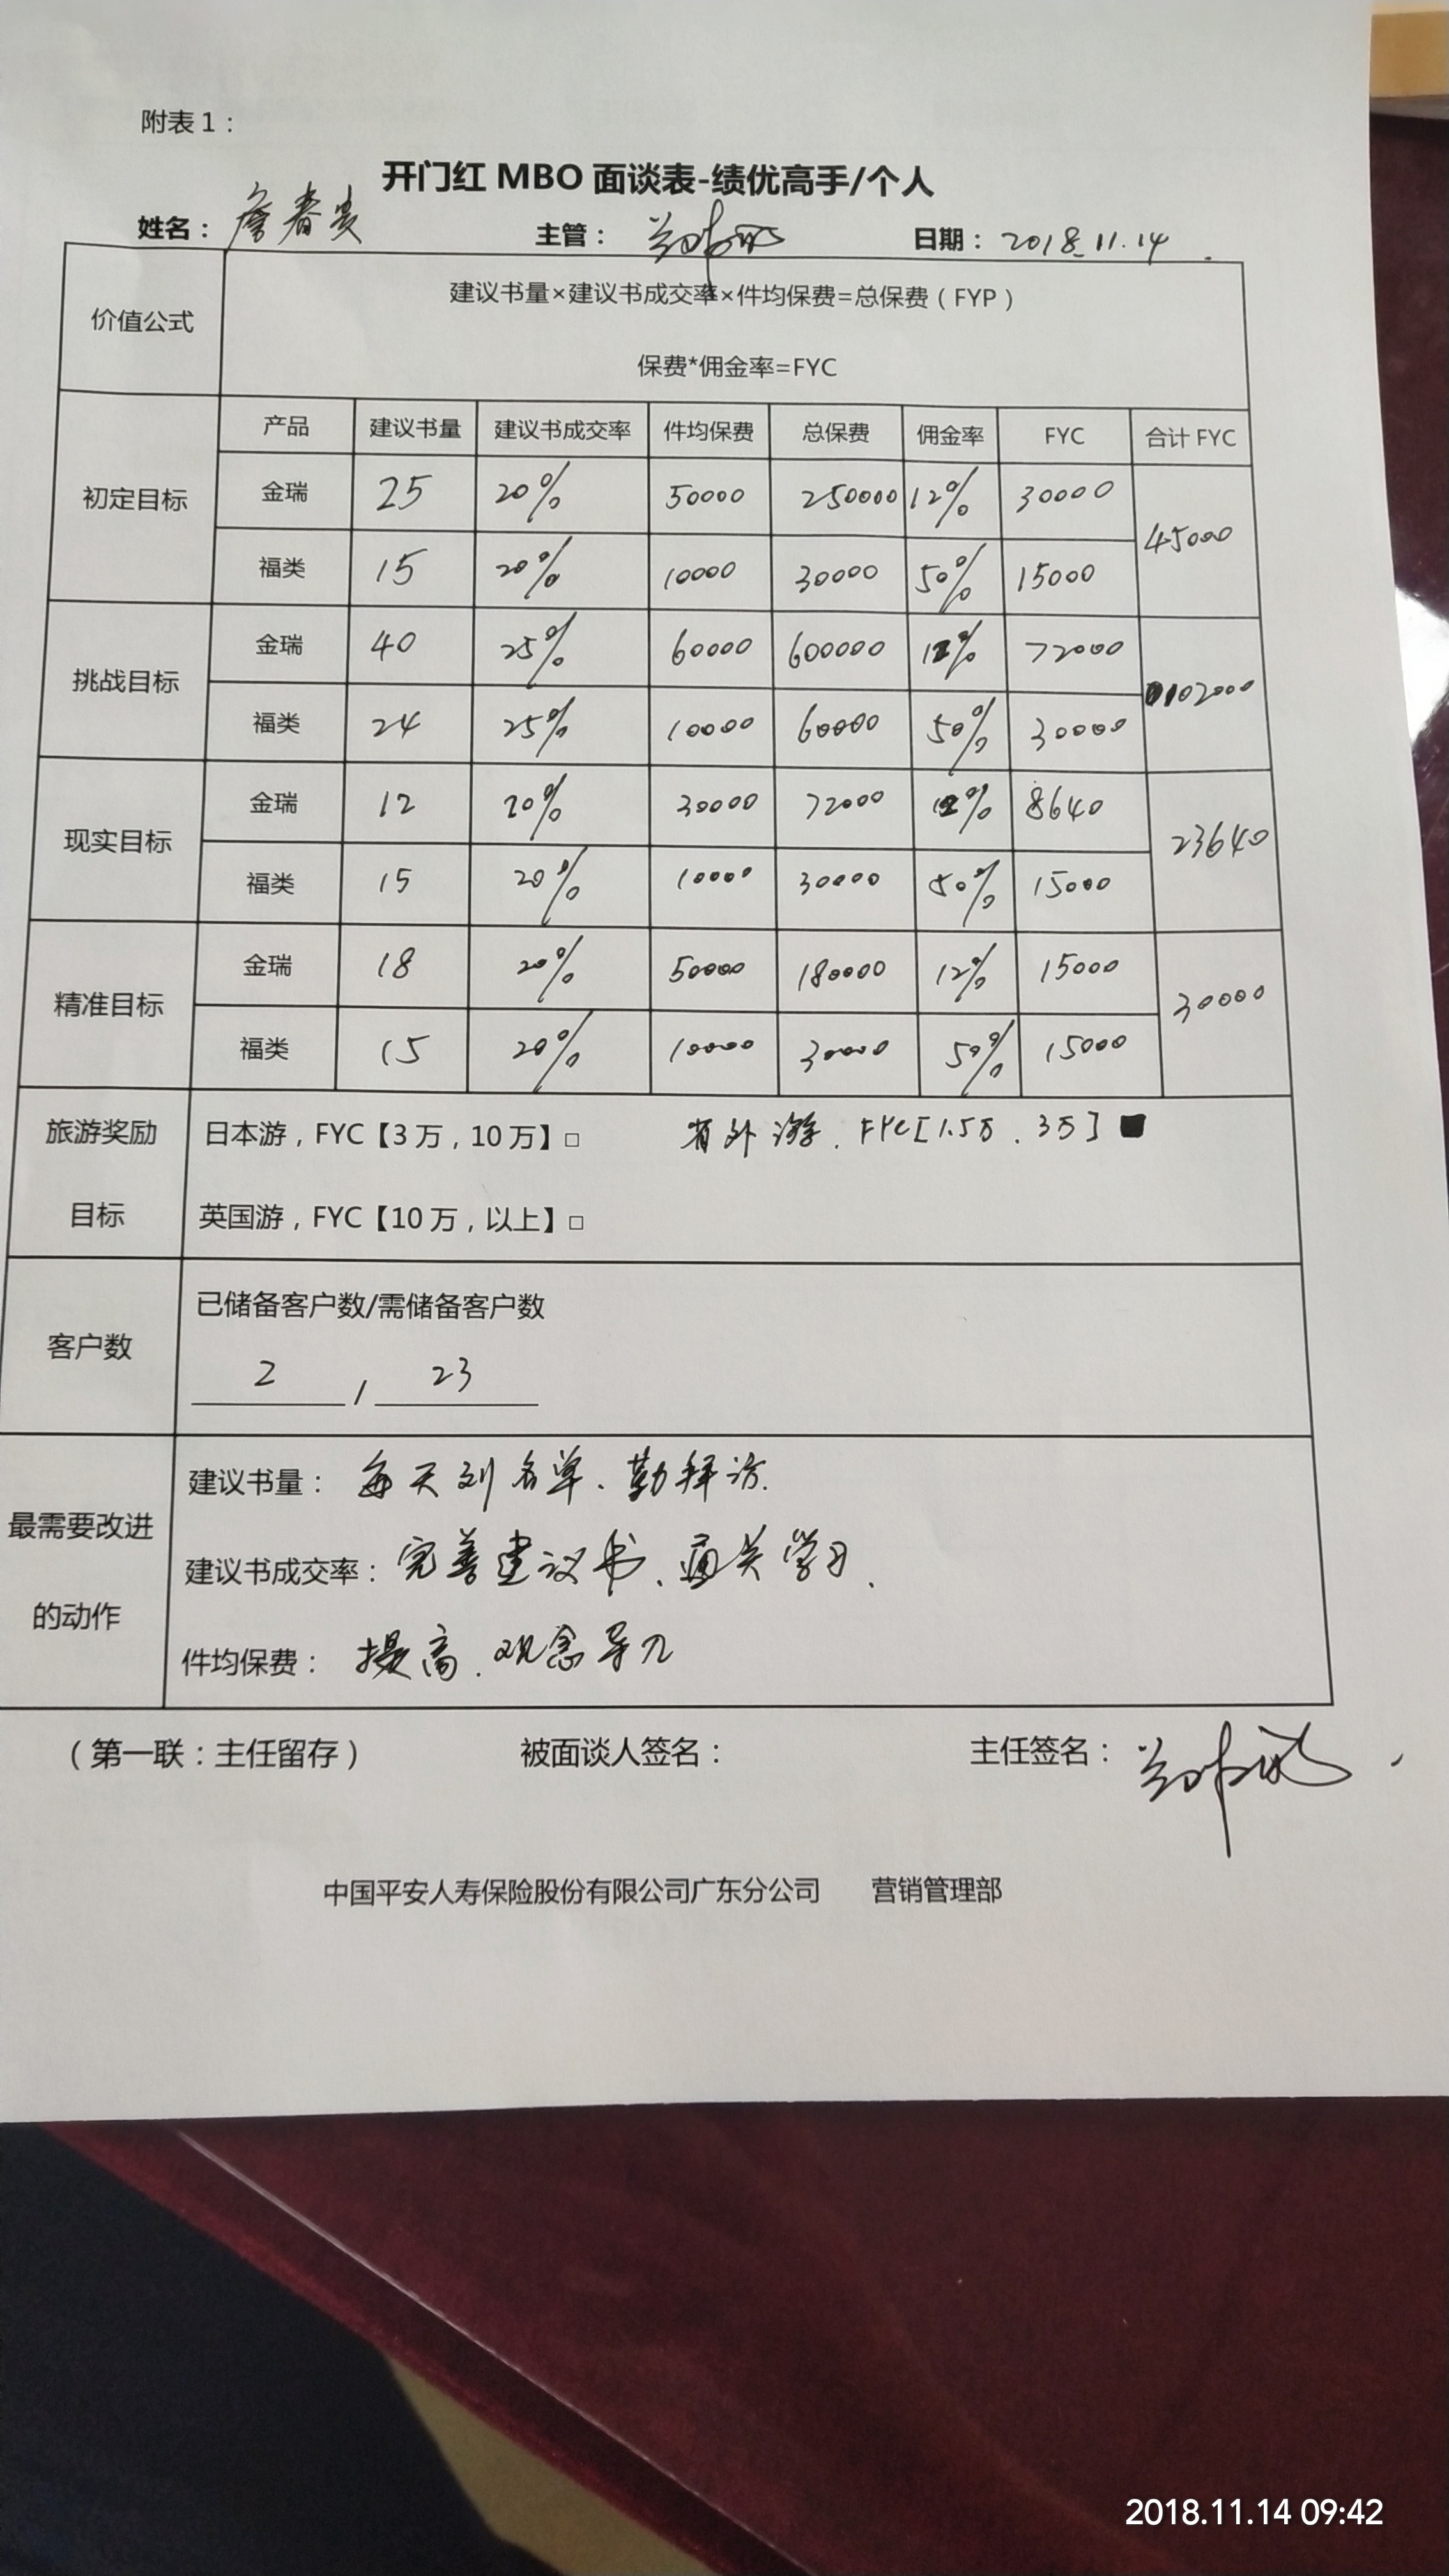 附表1：
开门红 MBO 面谈表-绩优高手/个人
姓名：詹春贵 主管： 日期：2018.11.14
价值公式
建议书量×建议书成交率×件均保费=总保费（FYP）
保费*佣金率=FYC
产品 建议书量 建议书成交率 件均保费 总保费 佣金率 FYC 合计 FYC
初定目标
金瑞 25 20% 50000 250000 12% 30000
45000
福类 15 20% 10000 30000 50% 15000
挑战目标
金瑞 40 25% 60000 600000 12% 72000
102000
福类 24 25% 10000 60000 50% 30000
现实目标
金瑞 12 20% 30000 72000 12% 8640
23640
福类 15 20% 10000 30000 50% 15000
精准目标
金瑞 18 20% 50000 180000 12% 15000
30000
福类 15 20% 10000 30000 50% 15000
旅游奖励
目标
日本游，FYC【3万，10万】□ 省外游．FYC[1.5万．3万]■
英国游，FYC【10万，以上】□
客户数
已储备客户数/需储备客户数
2 / 23
最需要改进
的动作
建议书量：每天列名单、勤拜访.
建议书成交率：完善建议书、通关学习、
件均保费：提高、观念导入
（第一联：主任留存） 被面谈人签名： 主任签名：
中国平安人寿保险股份有限公司广东分公司 营销管理部
2018.11.14 09:42